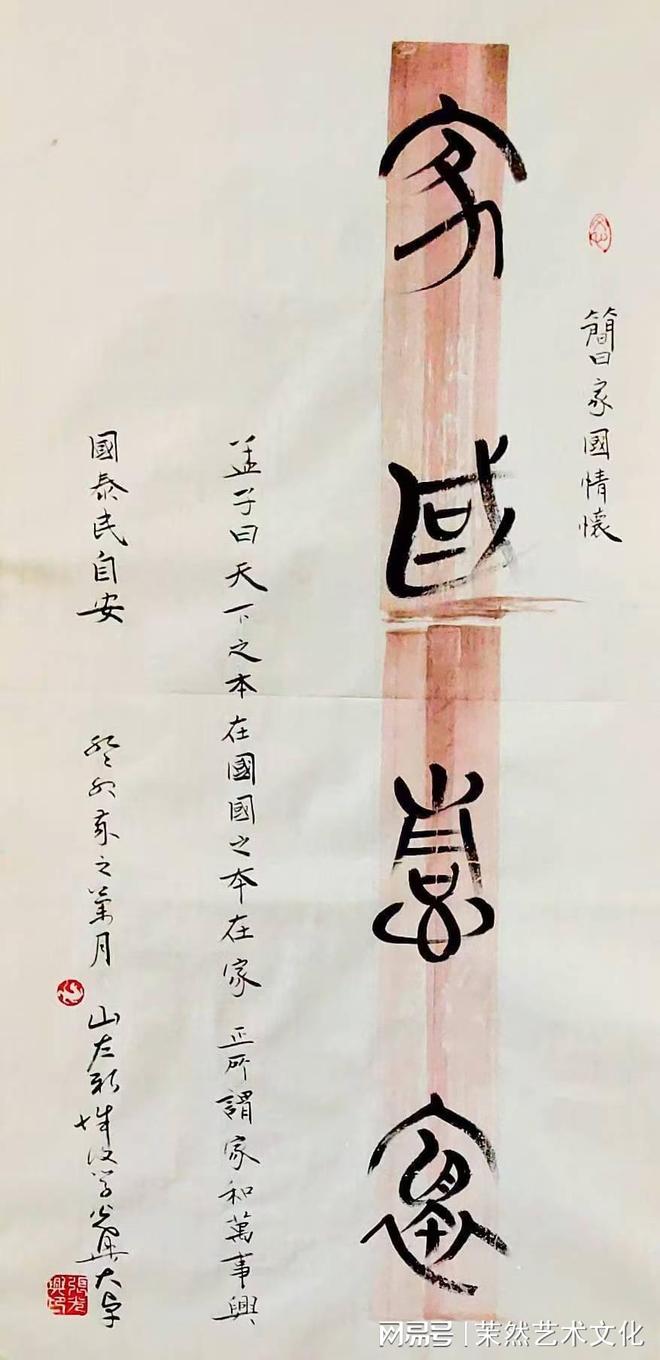 家國情懷
簡曰家國情懷
孟子曰天下之本在國國之本在家 正所謂家和萬事興
國泰民自安
癸卯家之葉月
山左
大年
網易号 | 茉然艺术文化